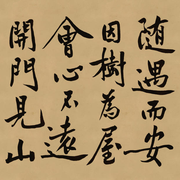 随遇而安
因樹為屋
會心不遠
開門見山